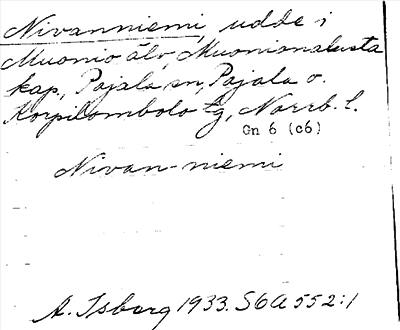 Nivanniemi, udde i
Muonio älv, Muonionalusta
kap., Pajala sn, Pajala o.
Korpilombolo tg, Norrb. l.
Gn 6 (c6)
Nivan-niemi
A. Isberg 1933. S6A552:1